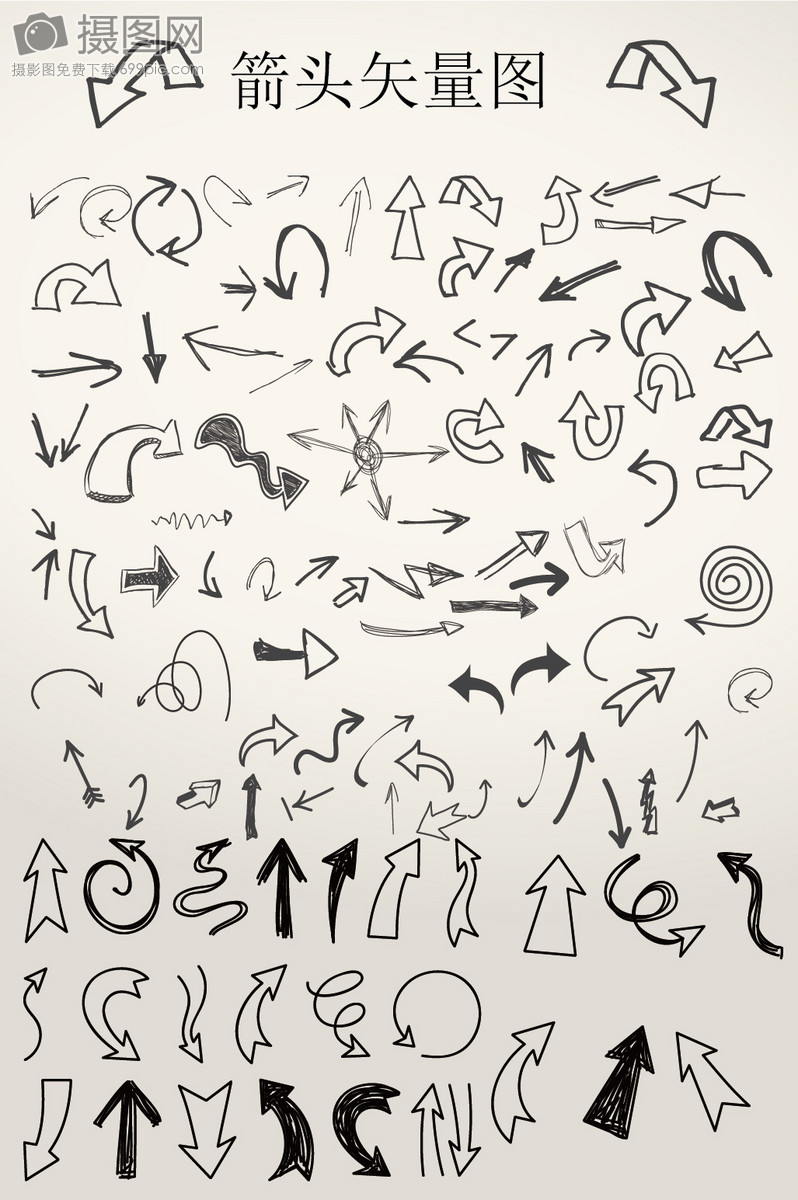 摄图网
摄影图免费下载 699pic.com
箭头矢量图